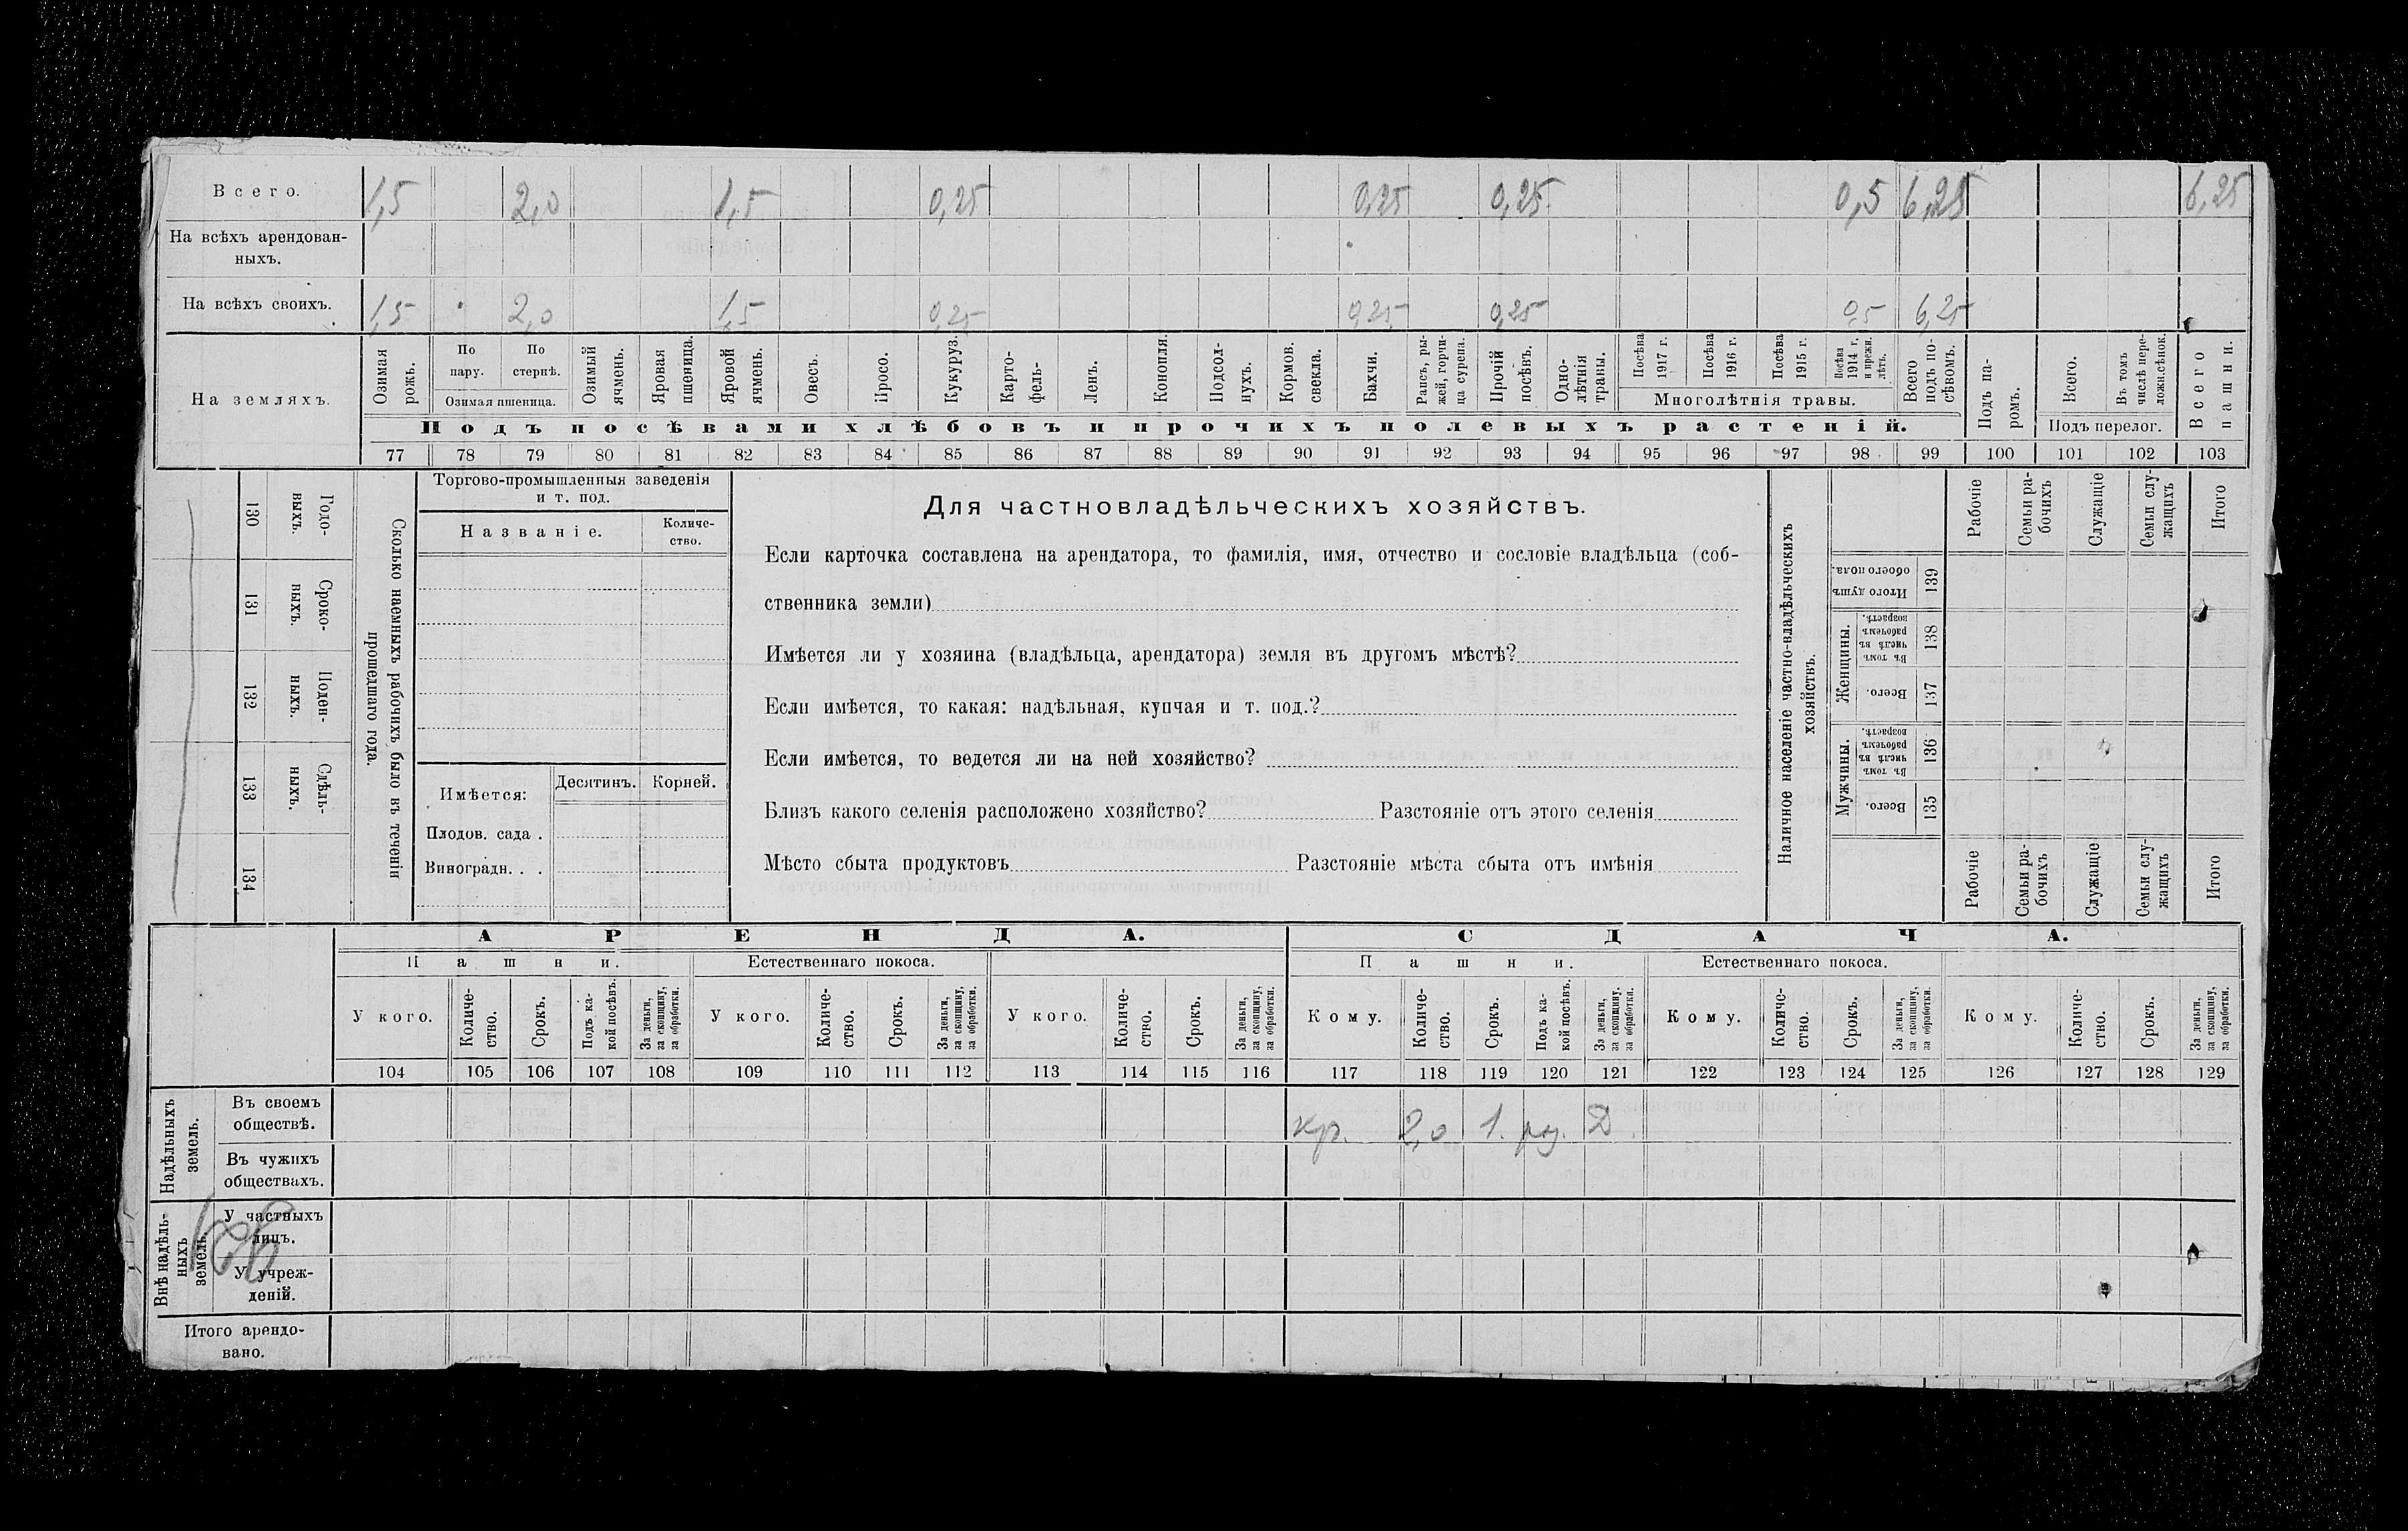 Всего. 1,5 2,0 1,5 0,25 0,25 0,25 0,5 6,25 6,25
На всѣхъ арендован-
ныхъ.
На всѣхъ своихъ. 1,5 2,0 1,5 0,25 0,25 0,25 0,5 6,25
На земляхъ.
Озимая рожь.
По пару.
По стернѣ.
Озимая пшеница.
Озимый ячмень.
Яровая пшеница.
Яровой ячмень.
Овесъ.
Просо.
Кукуруз.
Карто-
фель-
Ленъ.
Конопля.
Подсол-
нухъ.
Кормов.
свекла.
Бахчи.
Рапсъ, ры-
жей, горчи-
ца сурепа.
Прочій
посѣвъ.
Одно-
лѣтнія
травы.
Посѣва
1917 г.
Посѣва
1916 г.
Посѣва
1915 г.
Посѣва
1914 г,
и прежн.
лѣтъ.
Многолѣтнія травы.
Всего
подъ по-
сѣвомъ.
Подъ па-
ромъ.
Всего.
Въ томъ
числѣ пере-
ложн.сѣнок.
Подъ перелог.
Всего
пашни.
Подъ посѣвами хлѣбовъ и прочихъ полевыхъ растеній.
77 78 79 80 81 82 83 84 85 86 87 88 89 90 91 92 93 94 95 96 97 98 99 100 101 102 103
Сколько наемныхъ рабочихъ было въ теченіи
прошедшаго года.
Годо-
выхъ.
130
Сроко-
выхъ.
131
Поден-
ныхъ.
132
Сдѣль-
ныхъ.
133
134
Торгово-промышленныя заведенія
и т. под.
Названіе.
Количе-
ство.
Имѣется:
Десятинъ.
Корней.
Плодов. сада .
Виноградн. . .
Для частновладѣльческихъ хозяйствъ.
Если карточка составлена на арендатора, то фамилія, имя, отчество и сословіе владѣльца (соб-
ственника земли)
Имѣется ли у хозяина (владѣльца, арендатора) земля въ другомъ мѣстѣ?
Если имѣется, то какая: надѣльная, купчая и т. под.?
Если имѣется, то ведется ли на ней хозяйство?
Близъ какого селенія расположено хозяйство? Разстояніе отъ этого селенія
Мѣсто сбыта продуктовъ Разстояніе мѣста сбыта отъ имѣнія
Наличное населеніе частно-владѣльческихъ
хозяйствъ.
Рабочіе
Семьи ра-
бочихъ
Служащіе
Семьи слу-
жащихъ
Итого
Итого душъ
обоего пола.
139
Женщины.
Въ томъ
числѣ въ
рабочемъ
возрастѣ.
138
Всего.
137
Мужчины.
Въ томъ
числѣ въ
рабочемъ
возрастѣ.
136
Всего.
135
Рабочіе
Семьи ра-
бочихъ
Служащіе
Семьи слу-
жащихъ
Итого
АРЕНДА.
СДАЧА.
Пашни.
Естественнаго покоса.
Пашни.
Естественнаго покоса.
У кого.
Количе-
ство.
Срокъ.
Подъ ка-
кой посѣвъ.
За деньги,
за скопщину,
за обработки.
У кого.
Количе-
ство.
Срокъ.
За деньги,
за скопщину,
за обработки.
У кого.
Количе-
ство.
Срокъ.
За деньги,
за скопщину,
за обработки.
Кому.
Количе-
ство.
Срокъ.
Подъ ка-
кой посѣвъ.
За деньги,
за скопщину.
за обработки.
Кому.
Количе-
ство.
Срокъ.
За деньги,
за скопщину,
за обработки.
Кому.
Количе-
ство.
Срокъ.
За деньги,
за скопщину,
за обработки.
104 105 106 107 108 109 110 111 112 113 114 115 116 117 118 119 120 121 122 123 124 125 126 127 128 129
Надѣльныхъ
земель.
Въ своемъ
обществѣ.
кр. 2,0 1. Д
Въ чужихъ
обществахъ.
Внѣ надѣль-
ныхъ
земель.
У частныхъ
лицъ.
У учреж-
деній.
Итого арендо-
вано.